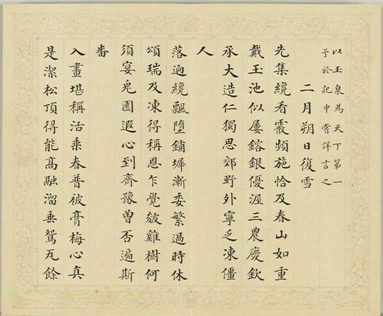 以玉泉為天下第一
予於記中嘗詳言之
二月朔日復雪
先集纔看霰頻施恰及春山如重
戴玉池似屢鎔銀優渥三農慶欽
承大造仁獨思郊野外寧乏凍僵
人
落迥纔飄墮鋪墀漸委繁過時休
頌瑞及凍得稱恩乍覺斂雞樹何
須宴兔園遐心到齊豫曾否遍斯
番
入畫堪稱沽乘春普被膏梅心真
是潔松頂得能高融溜垂鴛瓦餘